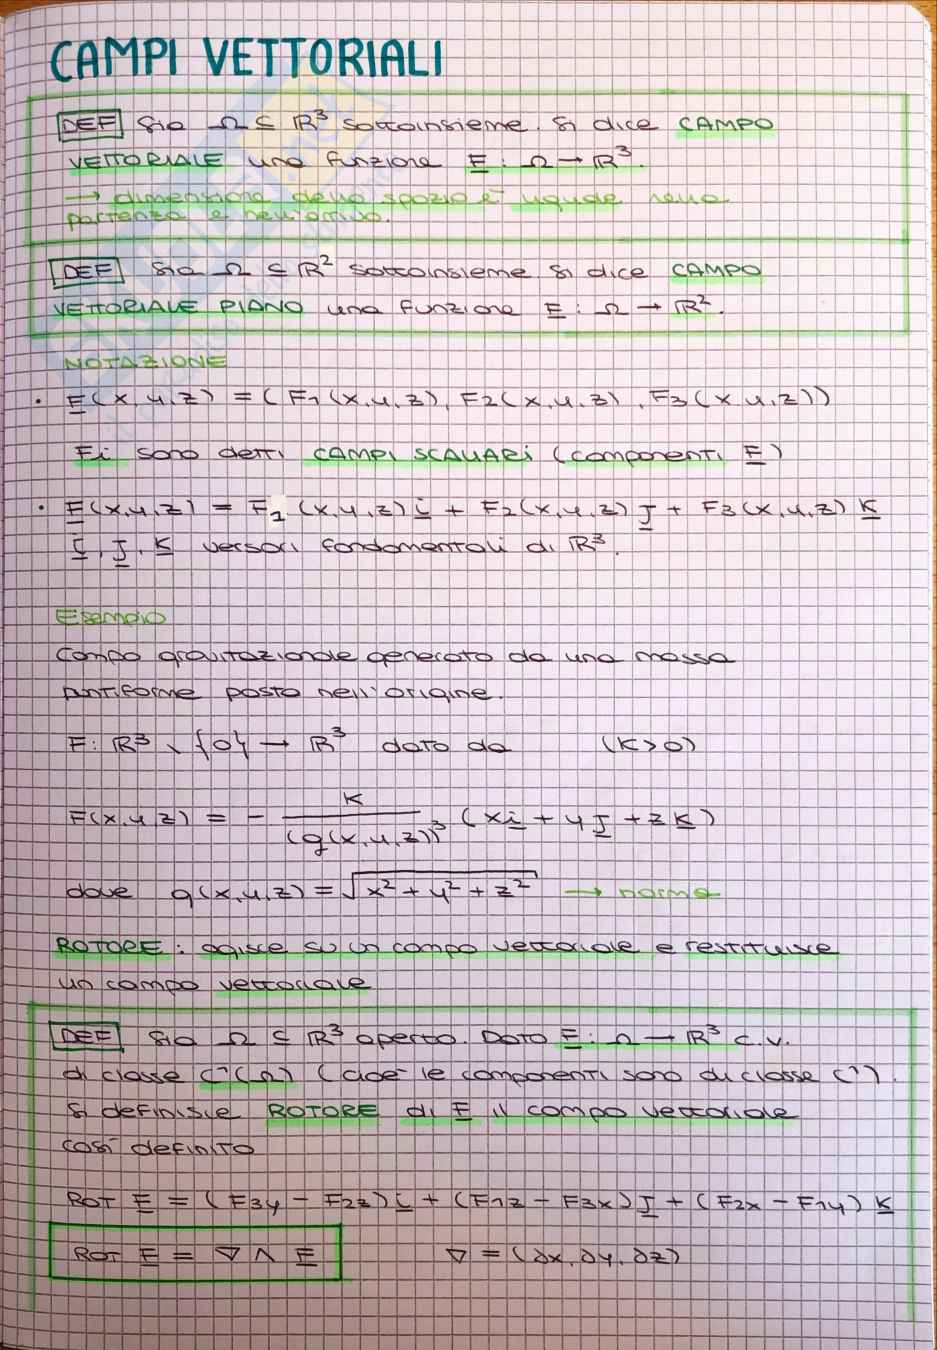 CAMPI VETTORIALI
DEF Sia Ω ⊆ ℝ³ sottoinsieme. Si dice CAMPO
VETTORIALE una funzione F : Ω → ℝ³.
→ dimensione dello spazio è uguale nella
partenza e nell'arrivo.
DEF Sia Ω ⊆ ℝ² sottoinsieme si dice CAMPO
VETTORIALE PIANO una funzione F : Ω → ℝ².
NOTAZIONE
• F(x,y,z) = (F1(x,y,z), F2(x,y,z), F3(x,y,z))
Fi sono detti CAMPI SCALARI (componenti F)
• F(x,y,z) = F1 (x,y,z) i + F2(x,y,z) J + F3(x,y,z) K
i, J, K versori fondamentali di ℝ³.
Esempio
Campo gravitazionale generato da una massa
puntiforme posta nell'origine.
F: ℝ³ \ {0} → ℝ³ dato da (K>0)
F(x,y,z) = - K / (g(x,y,z))³ (xi + yJ + zK)
dove g(x,y,z) = √x² + y² + z² → norma
ROTORE : agisce su un campo vettoriale e restituisce
un campo vettoriale
DEF Sia Ω ⊆ ℝ³ aperto. Dato F : Ω → ℝ³ c.v.
di classe C¹(Ω) (cioè le componenti sono di classe C¹).
Si definisce ROTORE di F il campo vettoriale
così definito
ROT F = (F3y - F2z) i + (F1z - F3x) J + (F2x - F1y) K
ROT F = ∇ ∧ F ∇ = (∂x, ∂y, ∂z)